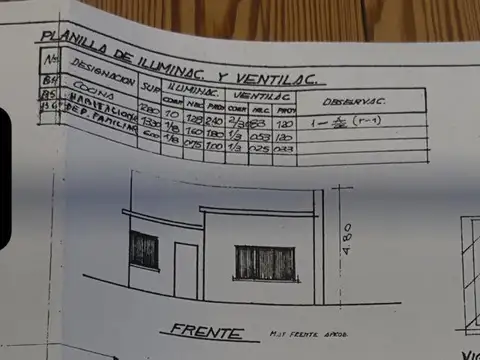 PLANILLA DE ILUMINAC. Y VENTILAC.
No DESIGNACION SUP ILUMINAC. VENTILAC OBSERVAC.
COEF NEC. PROY COEF NEC. PROY
B4 COCINA 10 128 240 120
B5 HABITACIONE 1/8 160 180 1/3 053 120
B6 DEP. FAMILIAR 600 1/8 075 100 1/3 025 033
4.80
FRENTE